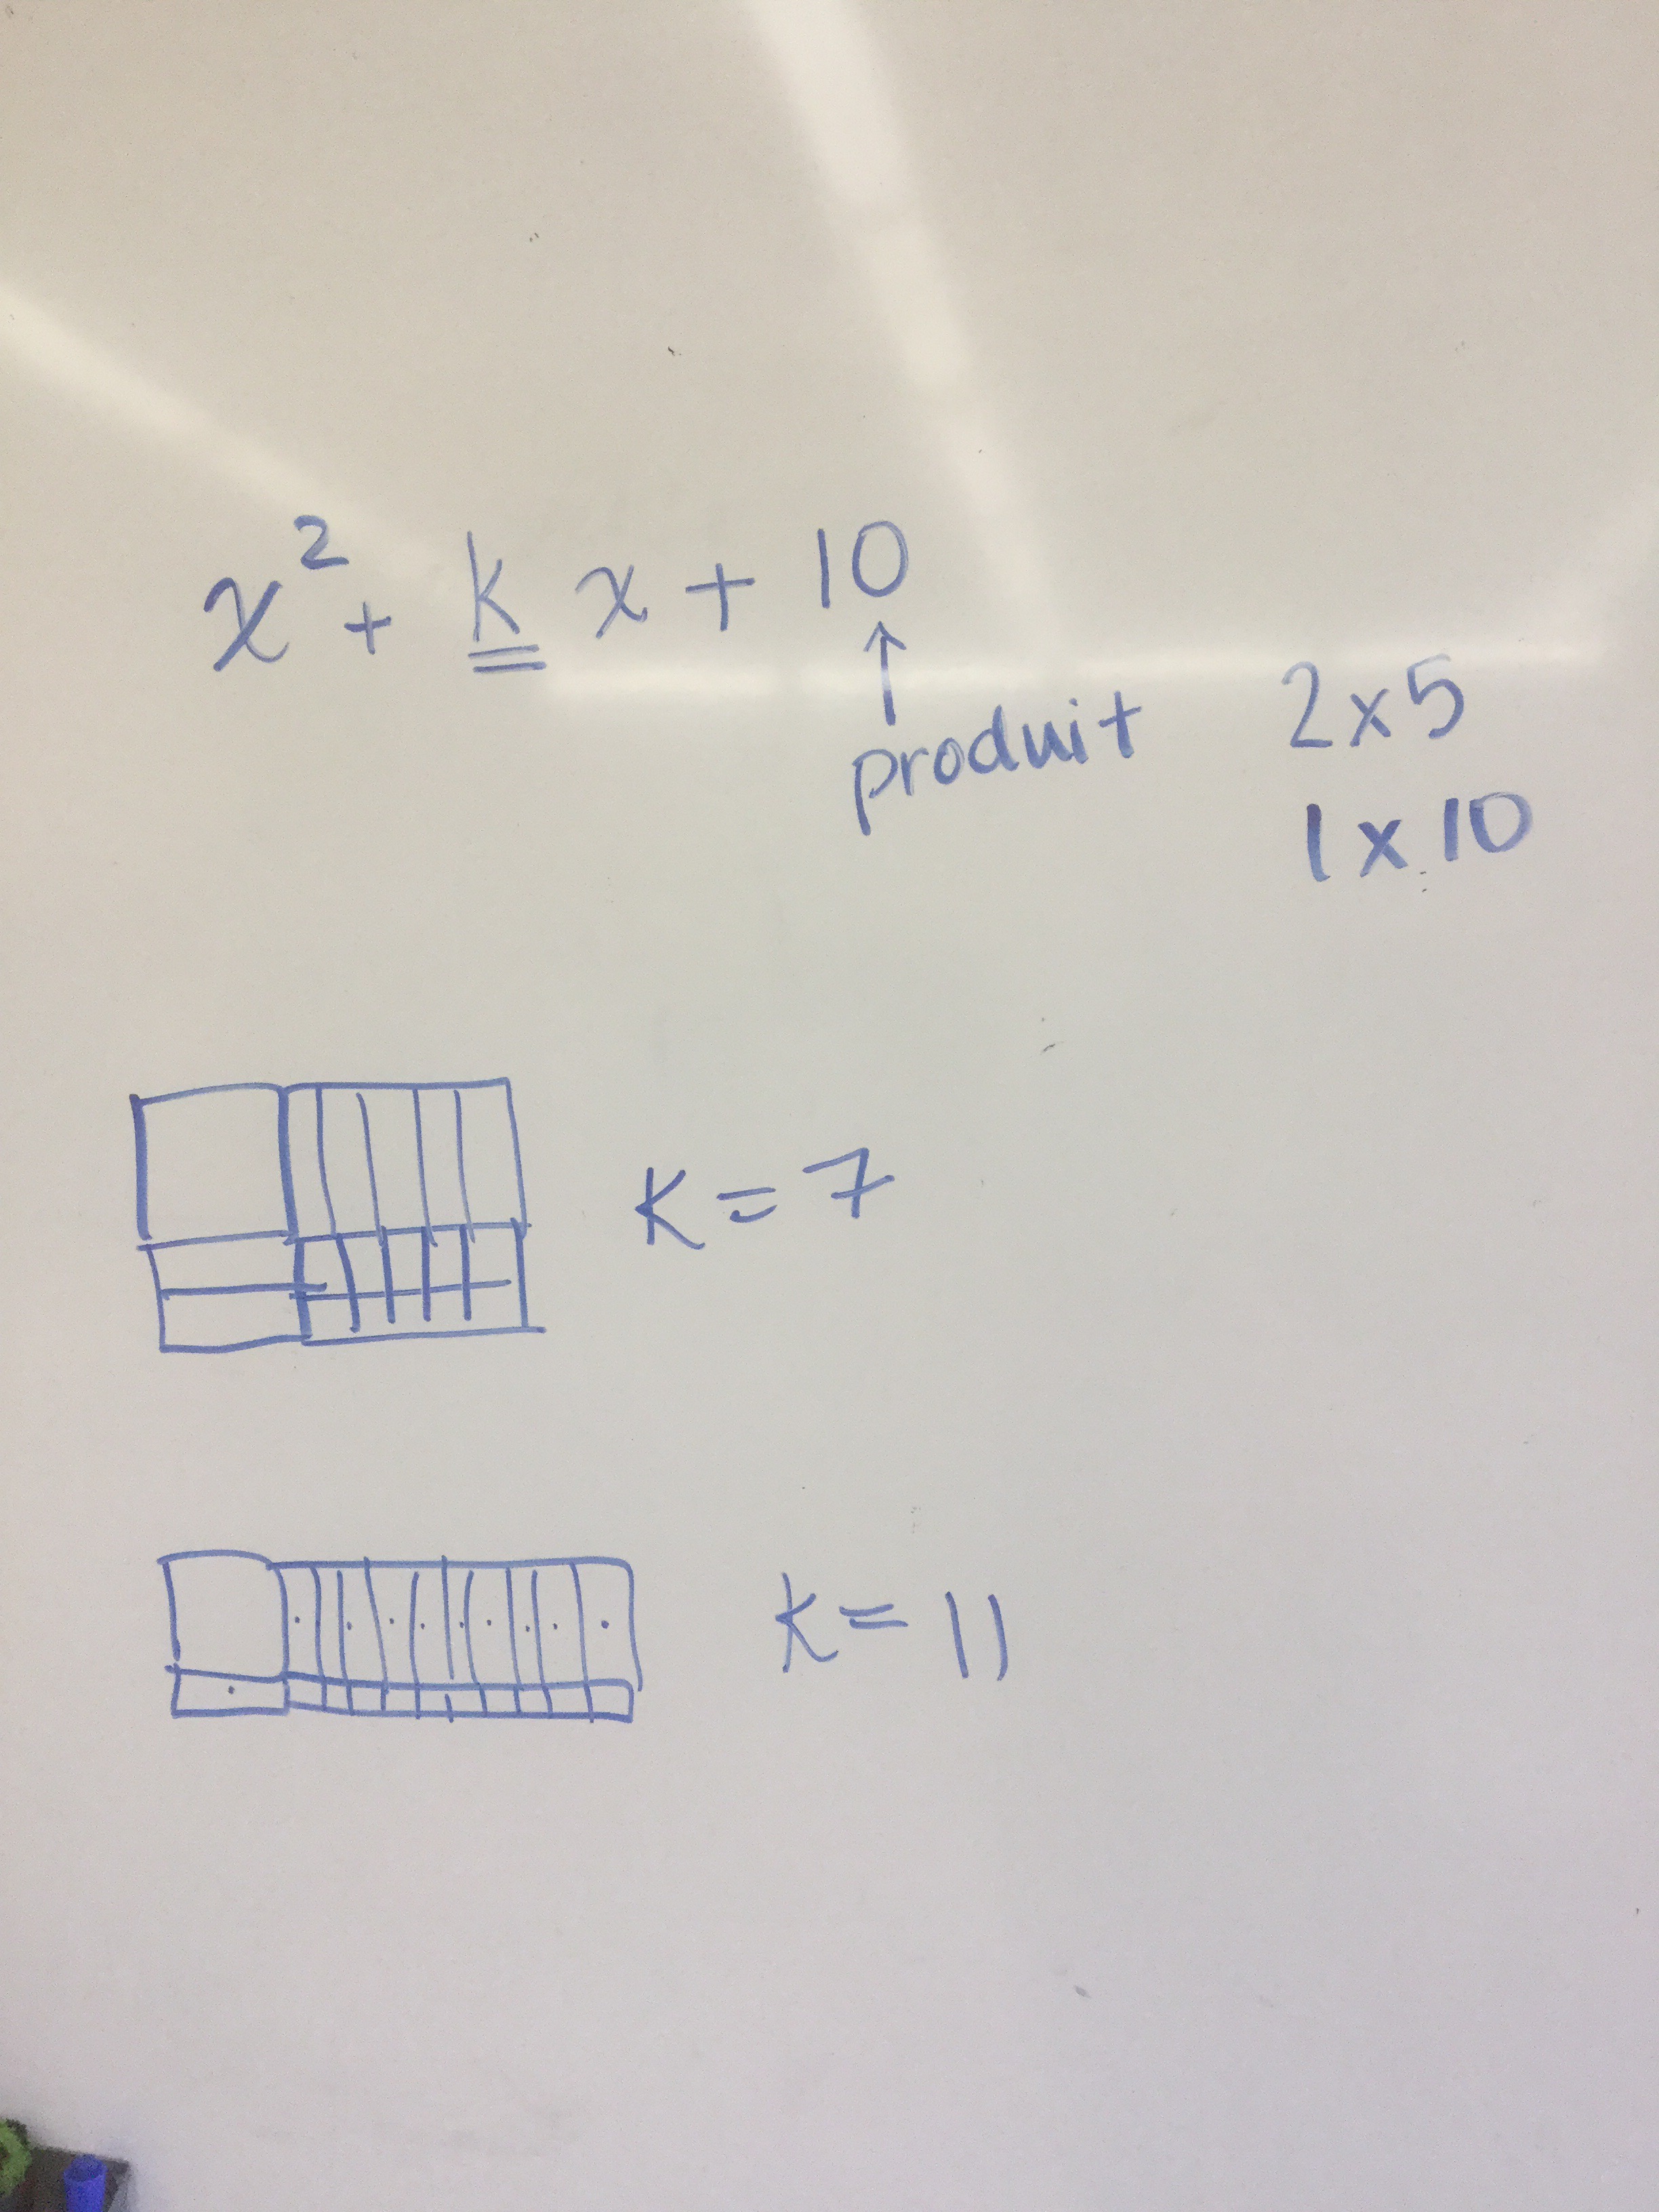 x² + k x + 10
↑
produit
2 x 5
1 x 10
k = 7
k = 11